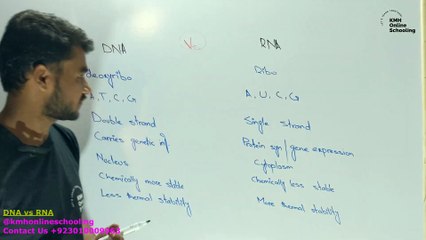 DNA Vs RNA
deoxyribo Ribo
A, T, C, G A, U, C, G
Double strand Single strand
Carries genetic inf Protein syn/gene expression
Nucleus Cytoplasm
Chemically more stable Chemically less stable
Less thermal stability More thermal stability
KMH
Online
Schooling
DNA vs RNA
@kmhonlineschooling
Contact Us